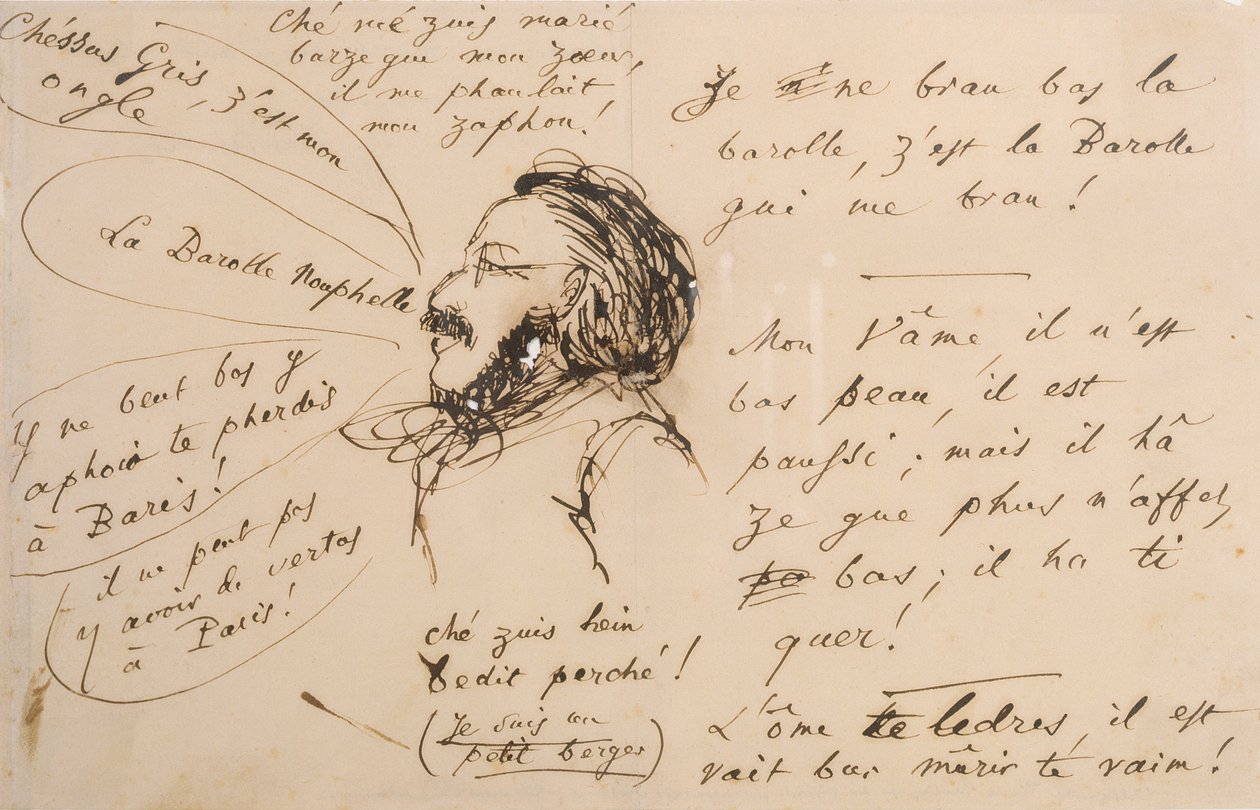 Chéssus Gris, z'est mon
ongle
Ché mé zuis marié
barzegue mon zœur,
il me phaulait
mon zaphon!
La Barolle Nouphelle
y ne beut bas y
aphoir te pherdis
à Baris!
il ne peut pas
y avoir de vertas
à Paris!
ché zuis hein
bedit perché!
(je suis un
petit berger)
Je ne bran bas la
barolle, z'est la Barolle
gui me bran!
Mon Vâme, il n'est
bas peau, il est
paussi; mais il hâ
ze gue phus n'affez
bas; il ha ti
quer!
L'ôme te ledres, il est
vait bur mûrir té vaim!